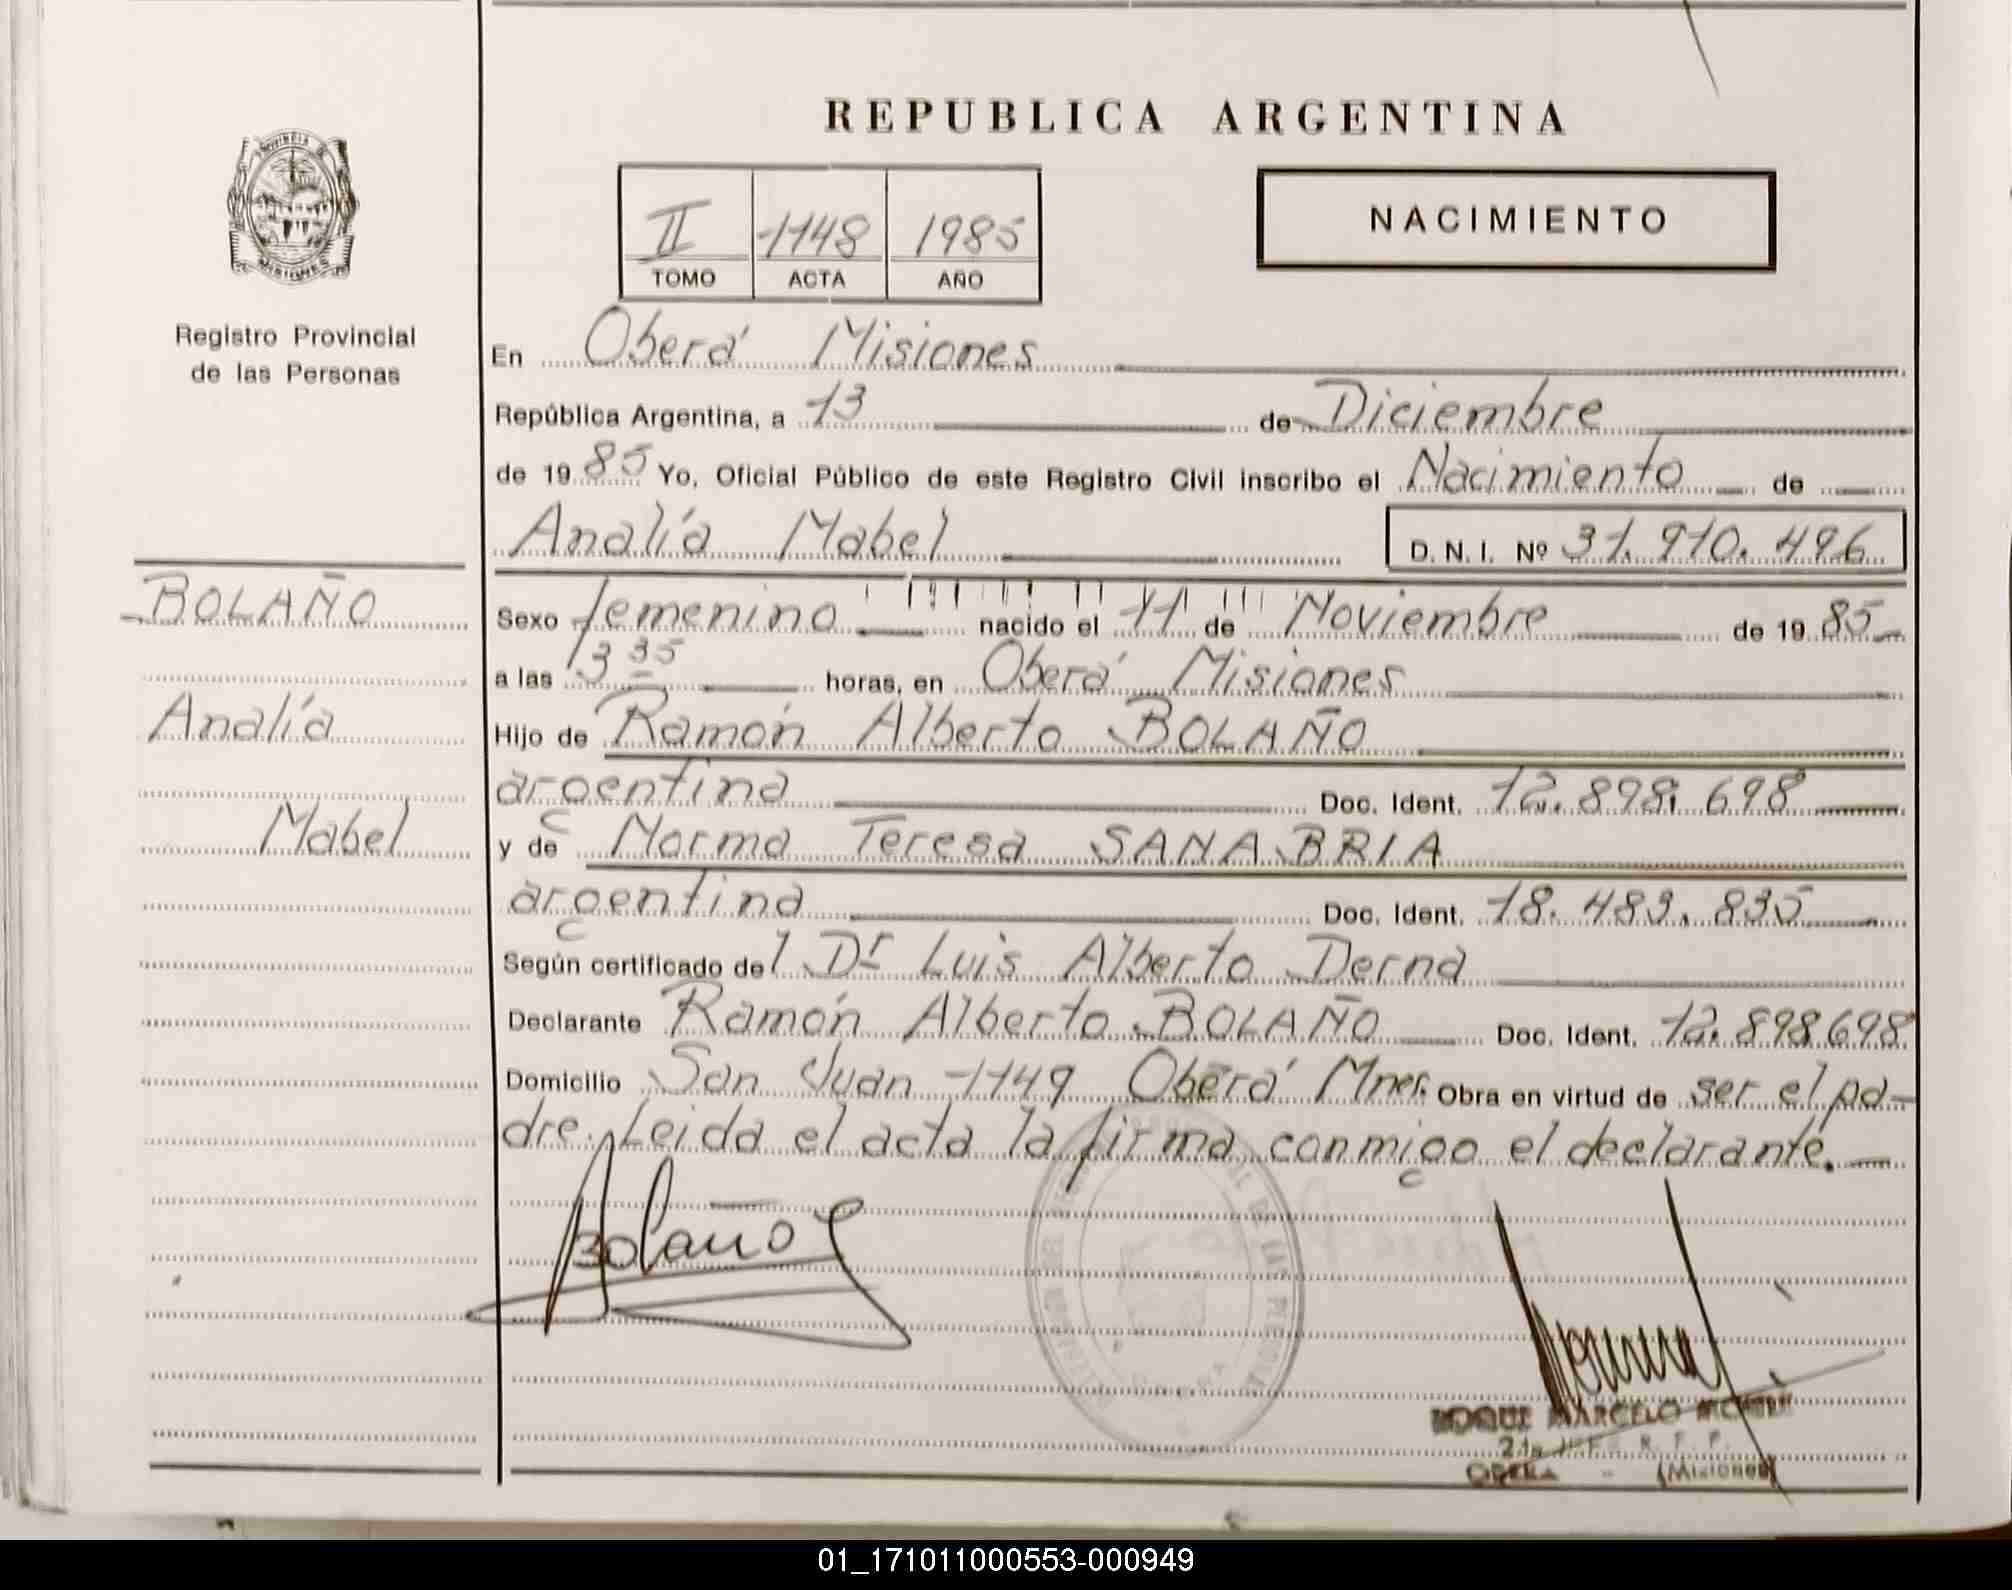 REPUBLICA ARGENTINA
PROVINCIA DE
MISIONES
Registro Provincial
de las Personas
NACIMIENTO
II 1148 1985
TOMO ACTA AÑO
En Oberá Misiones
República Argentina, a 13 de Diciembre
de 1985 Yo, Oficial Público de este Registro Civil inscribo el Nacimiento de
Analía Mabel D. N. I. Nº 31.910.496
BOLAÑO
Analía
Mabel
Sexo femenino nacido el 11 de Noviembre de 1985
a las 13 35 horas, en Oberá Misiones
Hijo de Ramón Alberto BOLAÑO
argentina Doc. Ident. 12.898.698
y de Norma Teresa SANABRIA
argentina Doc. Ident. 18.483.835
Según certificado del Dr Luis Alberto Derna
Declarante Ramón Alberto BOLAÑO Doc. Ident. 12.898.698
Domicilio San Juan 1149 Oberá Mnes. Obra en virtud de ser el pa-
dre. Leida el acta la firma conmigo el declarante.
Bolaño
ROQUE MARCELO
OBERA - (Misiones)
01_171011000553-000949